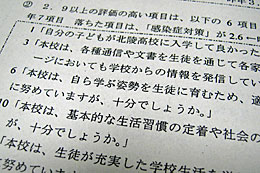 ② 2．9以上の評価の高い項目は、以下の6項目
年7項目 落ちた項目は、「感染症対策」が2.6→
1「自分の子どもが北陵高校に入学して良かった
3「本校は、各種通信や文書を生徒を通じて各家
ージにおいても学校からの情報を発信してい
6「本校は、自ら学ぶ姿勢を生徒に育むため、適
に努めていますが、十分でしょうか。」
「本校は、基本的な生活習慣の定着や社会の
が、十分でしょうか。」
「本校は、生徒が充実した学校生活を
に努めています